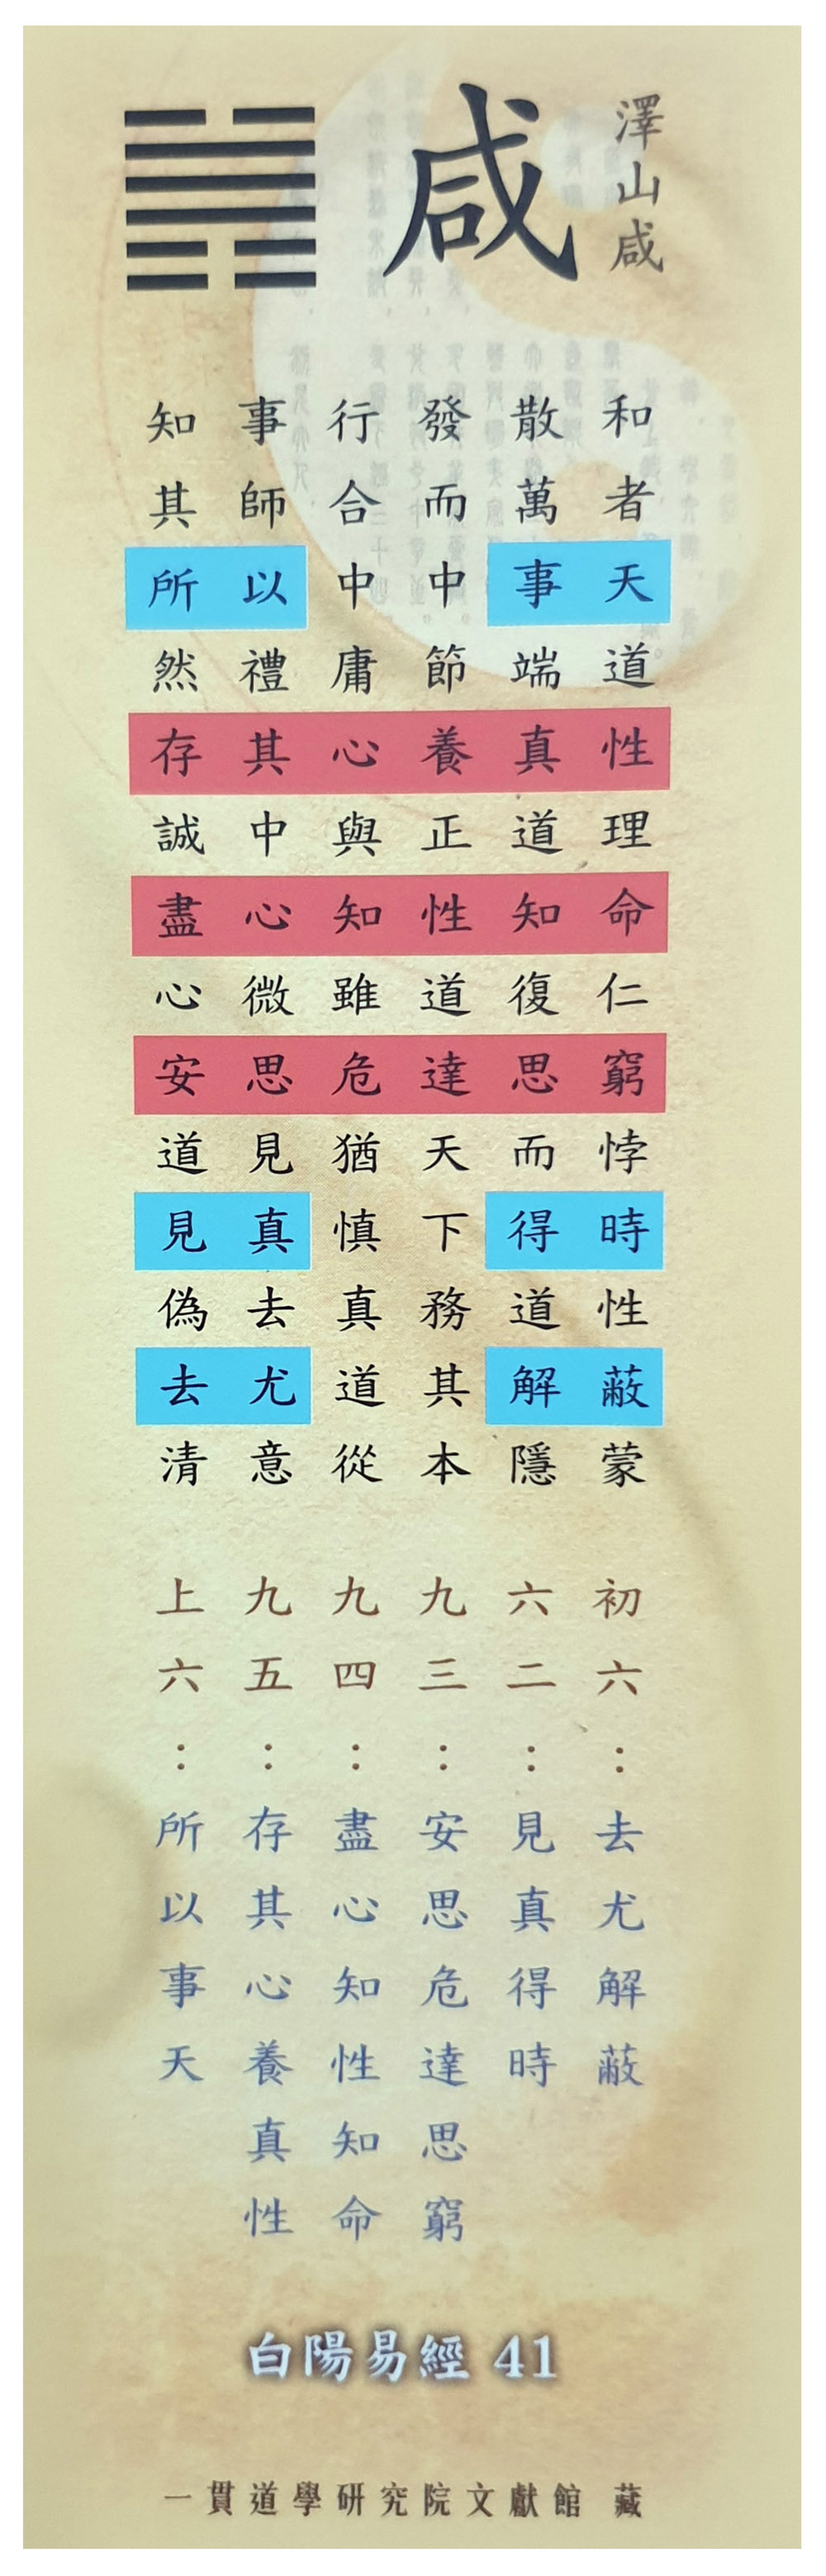 澤山咸
咸
和者天道性理命仁窮悖時性蔽蒙
散萬事端真道知復思而得道解隱
發而中節養正性道達天下務其本
行合中庸心與知雖危猶慎真道從
事師以禮其中心微思見真去尤意
知其所然存誠盡心安道見偽去清
初六：去尤解蔽
六二：見真得時
九三：安思危達思窮
九四：盡心知性知命
九五：存其心養真性
上六：所以事天
白陽易經 41
一貫道學研究院文獻館 藏